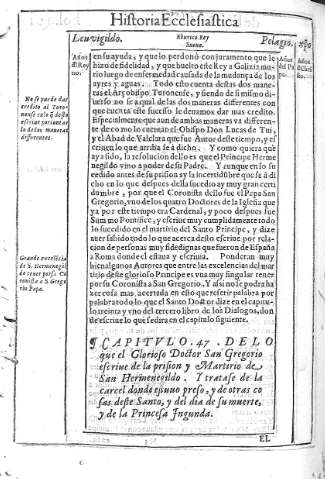 Historia Ecclesiastica
Leuvigildo.
Eborico Rey
Suevo.
Pelagio.
en su ayuda, y que lo perdonò con juramento que le
hizo de fidelidad, y que buelto este Rey a Galizia mu-
rio luego de enfermedad causada de la mudança de los
ayres y aguas. Todo esto cuenta destas dos mane-
ras el dicho Obispo Turonense, y siendo de si mismo di-
uerso no se a qual de las dos maneras differentes con
que cuenta este sucesso le demamos dar mas credito.
Especialmente que aun de ambas maneras va differen-
te de como lo cuentan el Obispo Don Lucas de Tui,
y el Abad de Valclara que fue Autor deste tiempo, y es-
criuen lo que arriba se à dicho. Y como quiera que
aya sido, la resolucion dello es que el Principe Herme
negildo vino a poder de su Padre. Y aunque en lo su
cedido antes de su prision ay la incertidumbre que se à di
cho en lo que despues della sucedio ay muy gran certi
dumbre, por que el Coronista dello fue el Papa San
Gregorio, vno de los quatro Doctores de la Iglesia que
ya por este tiempo era Cardenal, y poco despues fue
Summo Pontifice, y escriue muy cumplidamente todo
lo succedido en el martirio del Santo Principe, y dize
auer sabido todo lo que acerca desto escriue por rela-
cion de personas muy fidedignas que fueron de España
a Roma donde el estaua y escriuia. Ponderan muy
bien algunos Autores que entre las excelencias del mar
tirio deste glorioso Principe es vna muy singular tener
por su Coronista a San Gregorio. Y assi no se podra ha
zer cosa mas acertada en esto que referir palabra por
palabra todo lo que el Santo Doctor dize en el capitu-
lo treinta y vno del tercero libro de los Dialogos, don
de escriue lo que se dira en el capitulo siguiente.
No se puede dar
credito al Turo-
nense
differentes.
Grande excelencia
de S. Hermenegil-
do tener por su Co-
ronista a S. Grego
rio Papa.
¶ CAPITVLO. 47. DE LO
que el Glorioso Doctor San Gregorio
escriue de la prision y Martirio de
San Hermenegildo. Y tratase de la
carcel donde estuuo preso, y de otras co
sas deste Santo, y del dia de su muerte,
y de la Princesa Ingunda.
EL